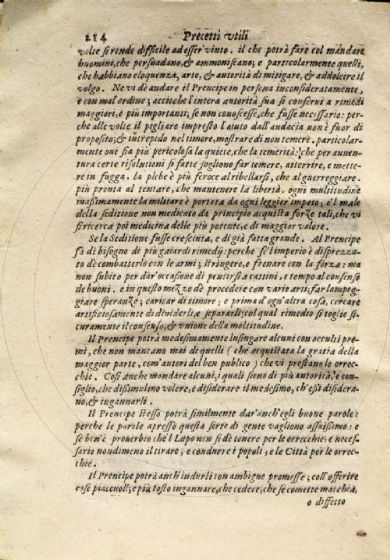 214 Precetti vtili
volte si rende difficile ad esser vinto. il che potrà fare col mandare
huomini, che persuadano, & ammoniscano; e particolarmente quelli,
che habbiano eloquenza, arte, & autorità di mitigare, & addolcire il
volgo. Ne vi dè andare il Prencipe in persona inconsideratamente,
e con mal'ordine; acciò che l'intera autorità sua si conserui a rimedi
maggiori, e più importanti; se non conoscesse, che fusse necessario: per
che alle volte il pigliare impresso l'aiuto dall'audacia non è fuor di
proposito; & intrepido nel timore, mostrare di non temere. particolar-
mente oue sia più pericolosa la quiete, che la temerità: che per auuen
tura certe risolutioni si fatte sogliono far temere, atterrire, e mette-
re in fugga. la plebe è più feroce al ribellarsi, che al guerreggiare.
più pronta al tentare, che mantenere la libertà. ogni multitudine
massimamente la militare è portata da ogni leggier impeto; e'l male
della seditione non medicato da principio acquista forze tali, che vi
si ricerca poi medicina delle più potente, e di maggior valore.
Se la Seditione fusse cresciuta, e di già fatta grande. Al Prencipe
fà di bisogno di più gagliardi rimedij: perche se l'imperio è disprezza-
to dè combatterlo con le armi; stringere, e frenare con la forza: ma
non subito per dar'occasione di pentirsi a cattiui, e tempo al consenso
de buoni. e in questo mezzo dè procedere con varie arti; far lampeg-
giare speranze; caricar di timore; e prima d'ogn'altra cosa, cercare
artificiosamente di diuiderli, e separarli; col qual rimedio si toglie si-
curamente il consenso, & vnione della moltitudine.
Il Prencipe potrà medesimamente lusingare alcuni con occulti pre
mi, che non mancano mai di quelli (che acquistata la gratia della
maggior parte, com'autori del ben publico) che vi prestano le orec-
chie. Così anche mandare alcuni, i quali sieno di più autorità, e con-
siglio, che dissimulino volere, e disiderare il medesimo, ch'essi disidera-
no, & ingannarli.
Il Prencipe stesso potrà similmente dar'anch'egli buone parole:
perche le parole apresso questa sorte di gente vagliono assaissimo: e
se ben'è prouerbio che il Lupo non si dè tenere per le orrecchie; e neces-
sario nondimeno il tirare, e condurre i popoli, e le Città per le orrec-
chie.
Il Prencipe potrà anch'indurli con ambigue promesse; coll'offerire
cose piaceuoli; e più tosto ingannare, che cedere, che se comette macchia,
o diffetto